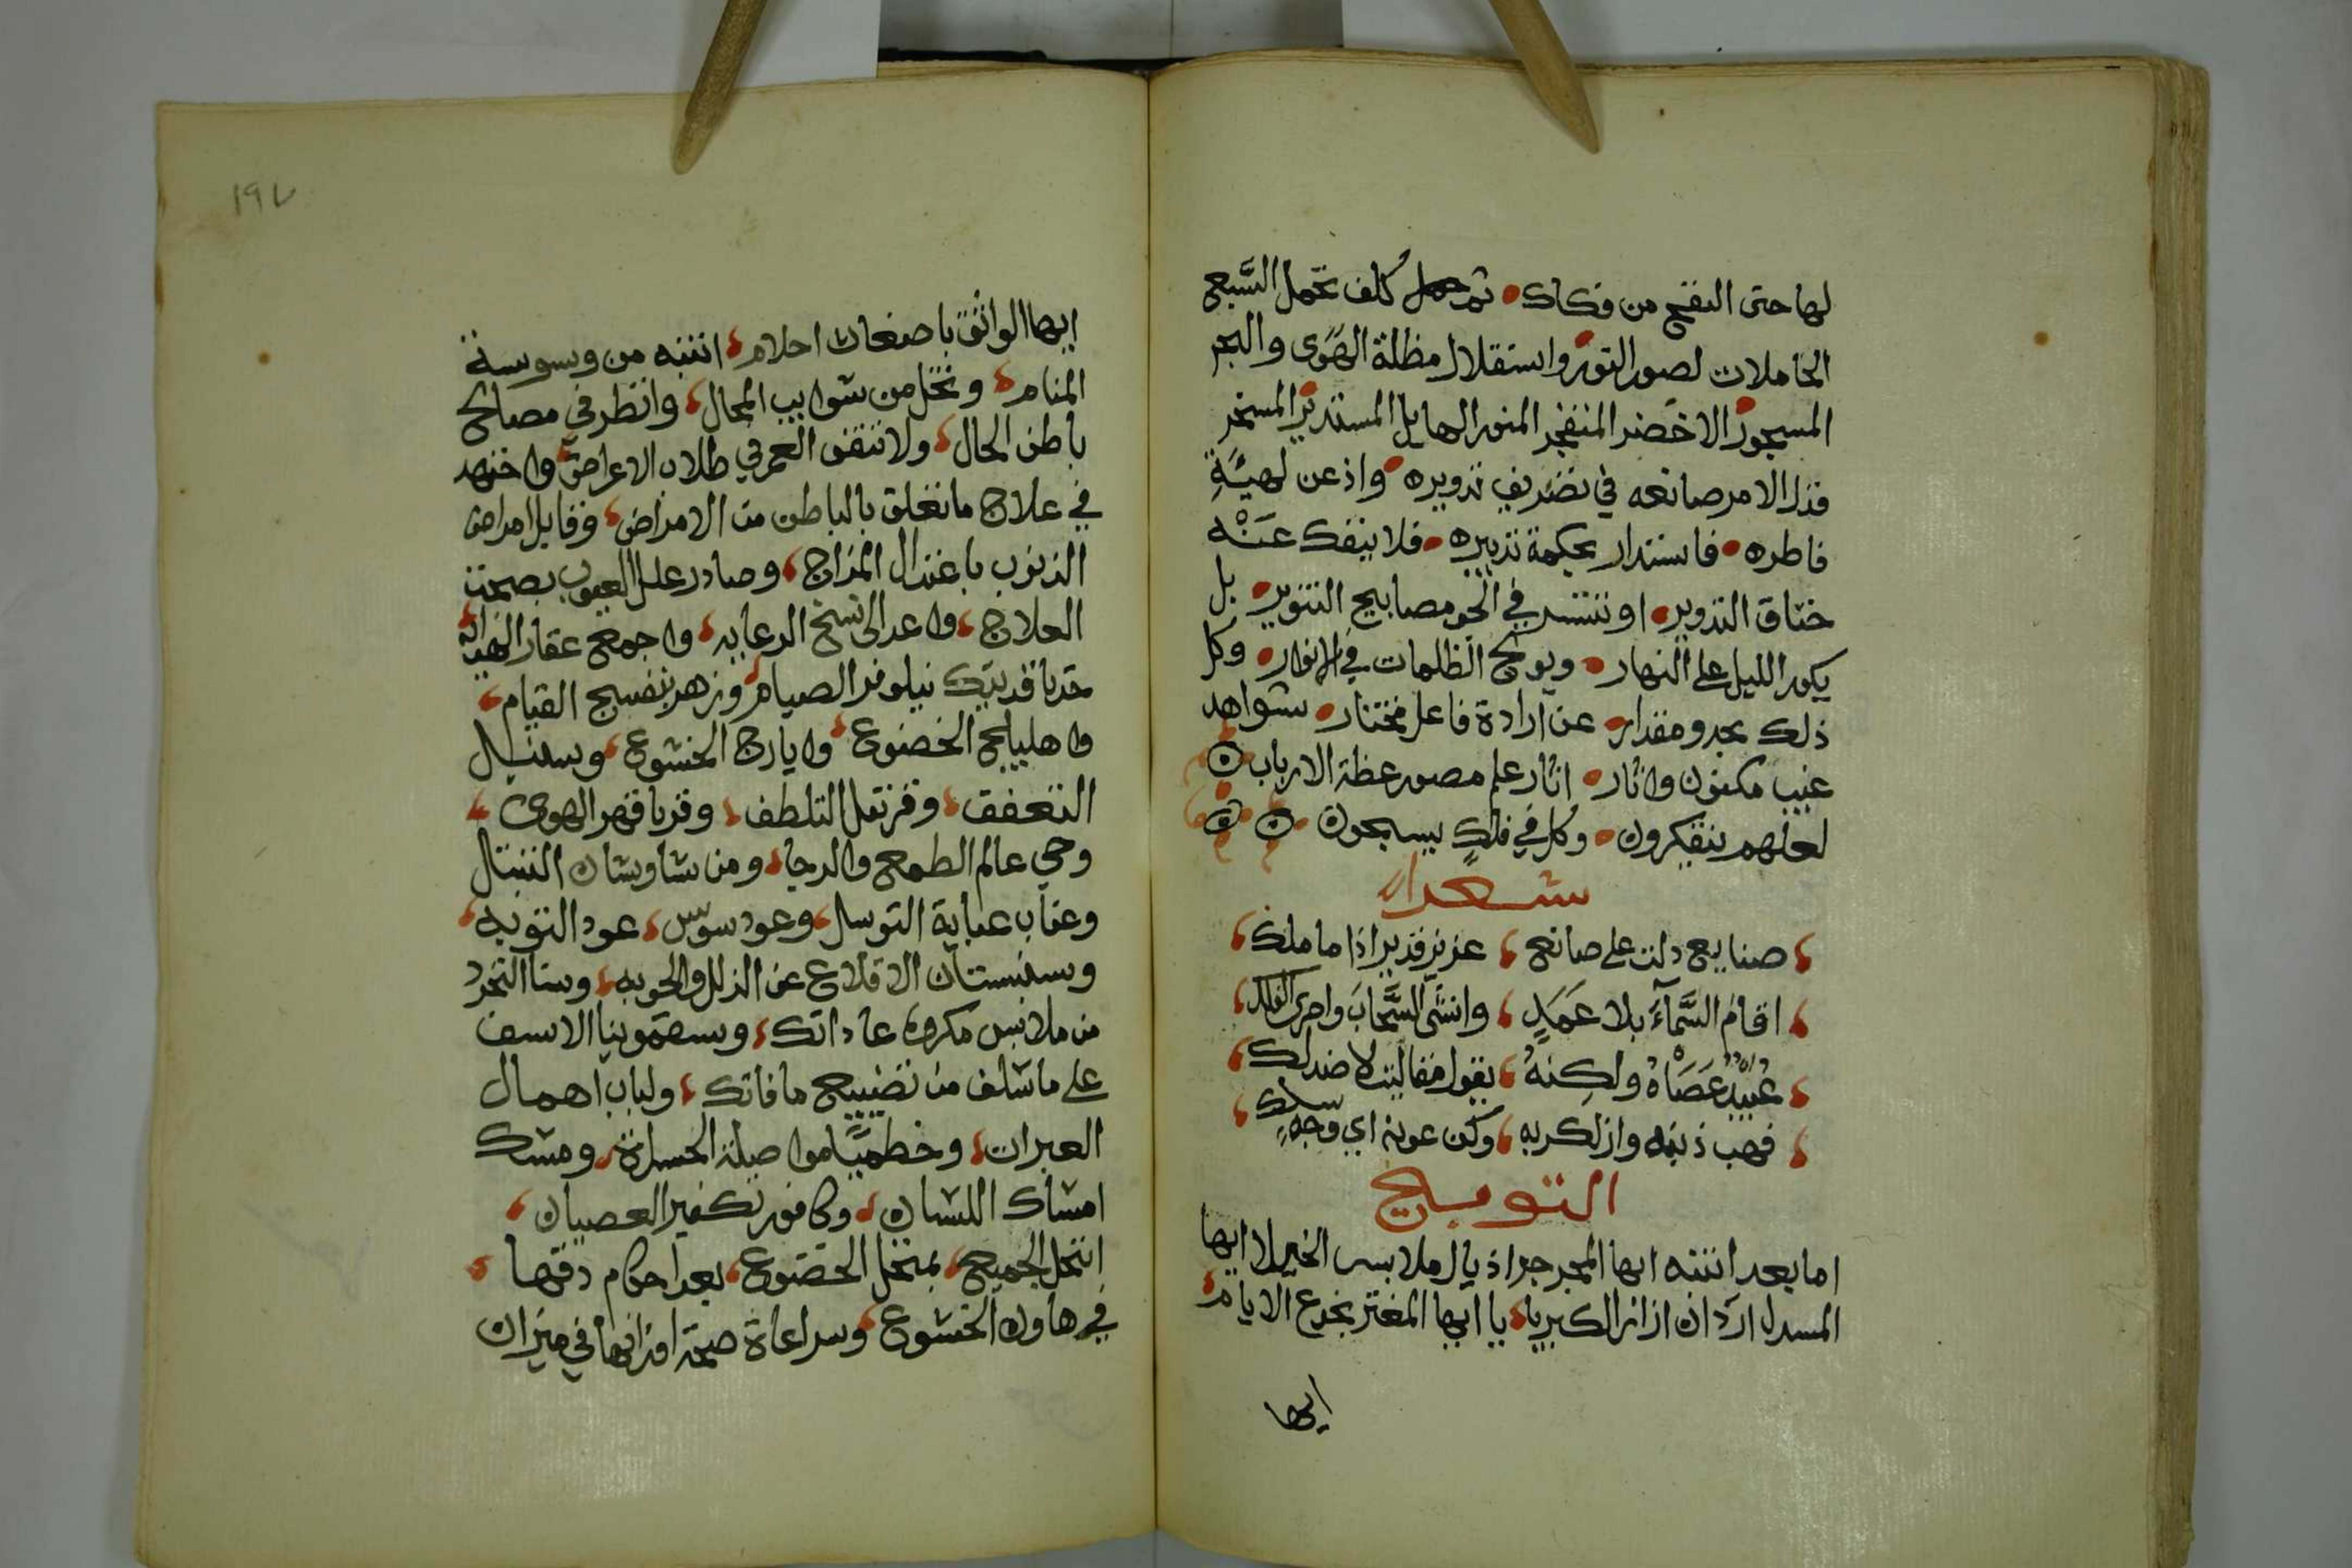 لها حتى النفخ من فكاك • ثم حمل كلف تحمل السَّبع
الحاملات لصور التور واستقلال مظلة الهوى والبحر
المسجور الاخضر المنفجر المنور الهايل المستدير المسخر
فذل الامر صانعه في تصريف تدويره • واذعن لهيئة
فاطره • فاستدار بحكمة تدبيره • فلا ينفك عَنْه
خناق التدوير • او تنتشر في الجو مصابيح التنوير • بل
يكور الليل على النهار • ويولج الظلمات في الانوار • وكل
ذلك بحد ومقدار • عن ارادة فاعل مختار • شواهد
غيب مكنون واثار • اثار علم مصور عظة الارباب
لعلهم يتفكرون • وكل في فلكٍ يسبحون
شعرا
صنايع دلت على صانع ، عزيز قدير اذا ما ملك
اقام السَّمآءَ بلا عَمَدٍ ، وانشى السَّحابَ واجرى الفلك
عُبَيْدٌ عَصَاهُ ولكنهُ ، يقول مقالي لا ضد لك
فهب ذنبه وازل كربه ، وكن عونه اي وجهٍ سلك
التوبيخ
اما بعد انتبه ايها المجرجر اذيال ملابس الخيلا ايها
المسدل اردان ازار الكبريا ، يا ايها المغتر بخدع الايام
ايها
١٩٧
ايها الواثق باضغاث احلام ، انتبه من وسوسة
المنام ، وتخل من شوايب المحال ، وانظر في مصالح
باطن الحال ، ولا تنفق العمر في طلاب الاعراض ، واجتهد
في علاج ما تعلق بالباطن من الامراض ، وقابل امراض
الذنوب باعتدال المزاج ، وصادر علل العيوب بصحت
العلاج ، واعد الى نسخ الرعايه ، واجمع عقار الهدايه
حد باقديتك نيلوفر الصيام ، وزهر بنفسج القيام ،
واهليلج الخضوع ، وايارج الخشوع ، وسنبل
التعفف ، وقرنفل التلطف ، وقربا قهر الهوى ،
وحي عالم الطمع والرجا ، ومن شاوشان التبتال
وعناب عناية التوسل ، وعود سوس ، عود التوبه ،
وسنبستان الاقلاع عن الذلل والحوبه ، وسنا التجرد
من ملابس مكروه عاداتك ، وسقمونيا الاسف
على ما سلف من تضييع مافاتك ، ولباب اهمال
العبرات ، وخطميَّا مواصلة الحسرات ، ومسك
امساك اللسان ، وكافور تكفير العصيان ،
انتخل الجميع ، بمنخل الخضوع ، بعد احكام دقها ،
في هاون الخشوع ، ومراعاة صحة اوزانها في ميزان